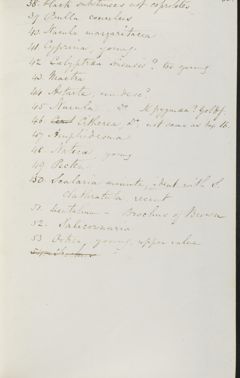 38. black substances not coprolites
39. Bulla convoluta
40. Nucula margaritacea
41. Cyprina, young
42. Calyptraea sinensis? too young
43. Mactra
44. Astarte, undesc?
45. Nucula - Do
46. Ostrea, Do not same as
47. Amphidesma
48. Natica young
49. Pecten
50. Scalaria minuta, ident. with S.
clathratula, recent
51. Dentalium - Brochus of Brown
52. Salicornaria
53. Ostrea, young, upper valve